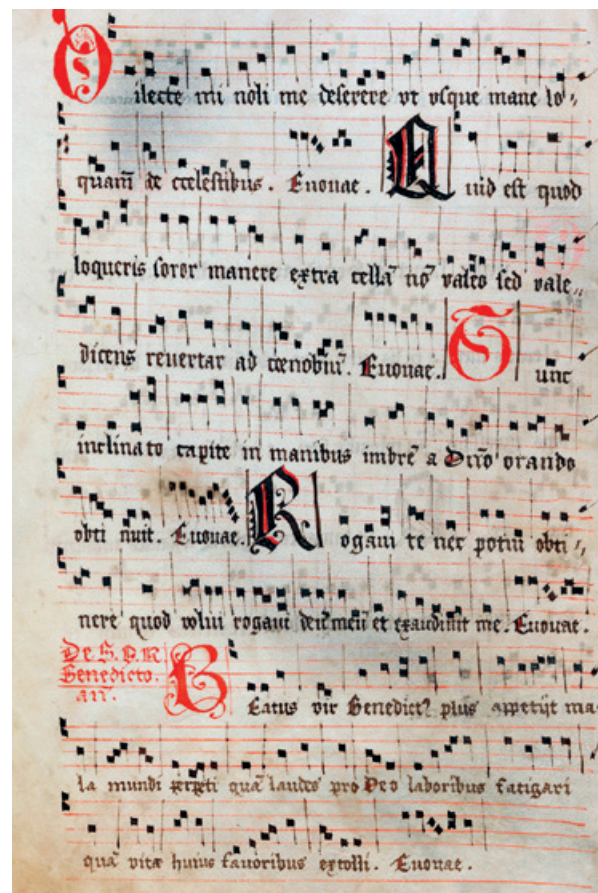 Dilecte mi noli me deserere vt vsque mane lo⸗
quam̃ de celestibus. Euouae. Quid est quod
loqueris soror manere extra cellã nõ valeo sed vale⸗
dicens reuertar ad cœnobiũ. Euouae. Tunc
inclinato capite in manibus imbrẽ a Dño orando
obti nuit. Euouae. Rogaui te nec potui obti⸗
nere quod volui rogaui deũ meũ et exaudiuit me. Euouae.
De S. P. N.
Benedicto.
añ.
Beatus vir Benedict9 plus appetijt ma
la mundi perpeti quã laudes pro Deo laboribus fatigari
quã vitæ huius fauoribus extolli. Euouae.